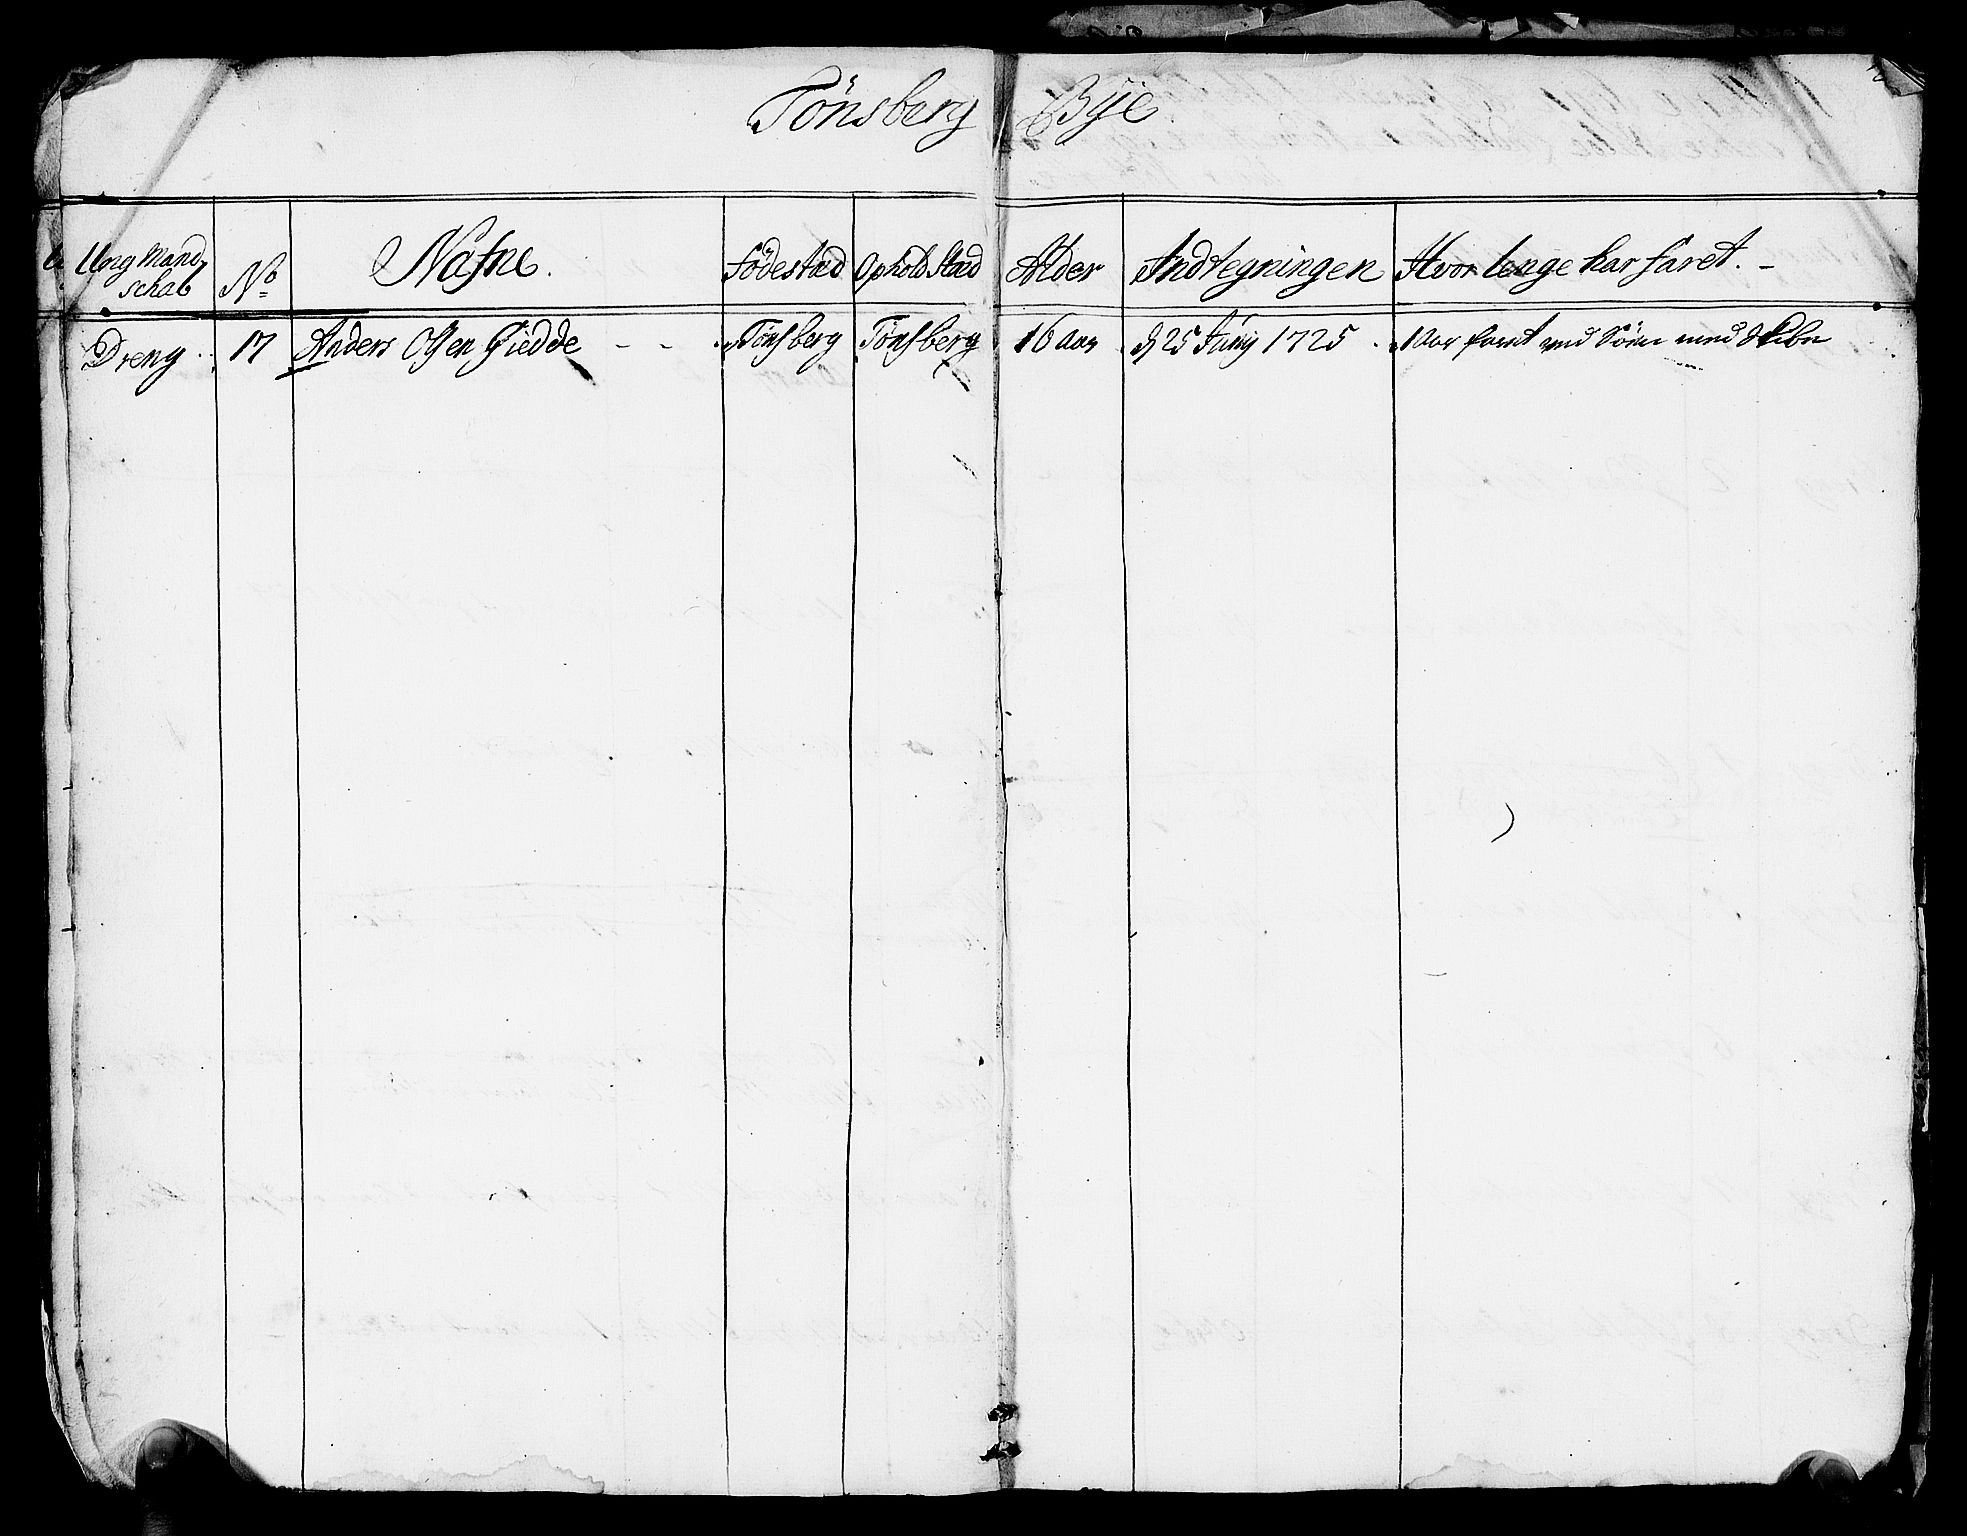 Tönsberg Bÿe
Ung Mand schab No Nafne. Födestæd Ophold Stæd Alder Indtegningen Hvor lenge har faret. -
Dreng 17 Anders Olsen Giedde - - Tönsberg Tönsberg 16 aar d 25 Junij 1725 . 1 aar faret med Skibe